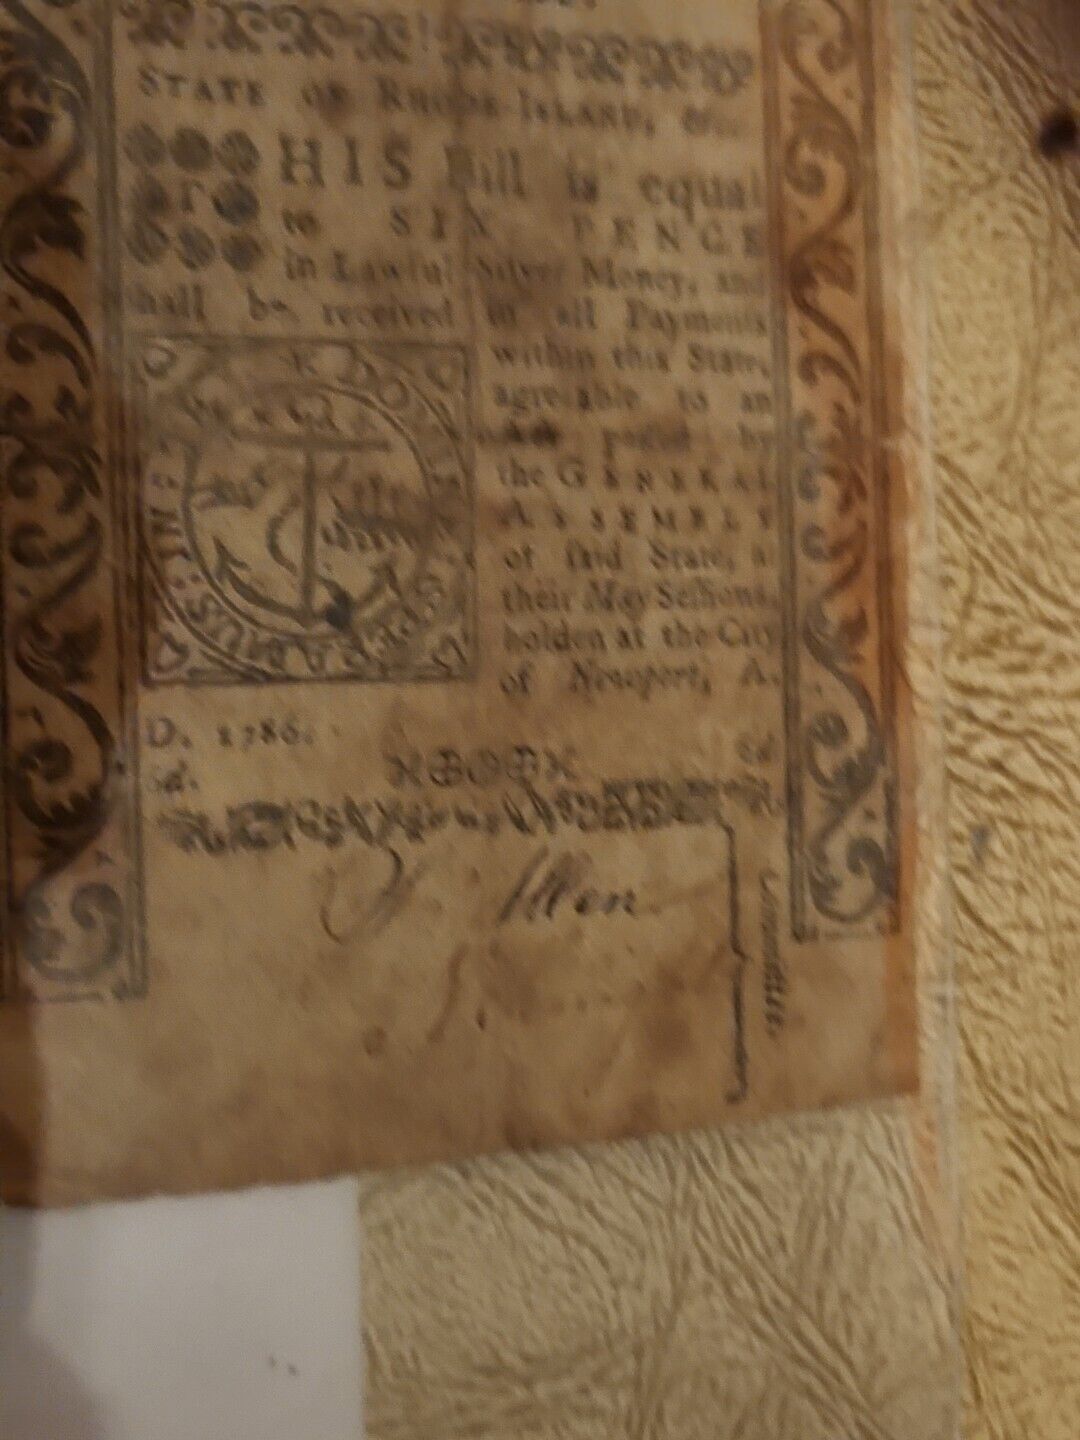 STATE OF RHODE-ISLAND, &c.
THIS Bill is equal
to SIX PENCE
in Lawful Silver Money, and
shall be received in all Payments
within this State,
agreeable to an
Act passed by
the GENERAL
ASSEMBLY
of said State, a
their May Sessions,
holden at the City
of Newport, A.
D. 1786.
6d.
6d
IN TE DOMINE SPERABIMUS
Allen
Committee.